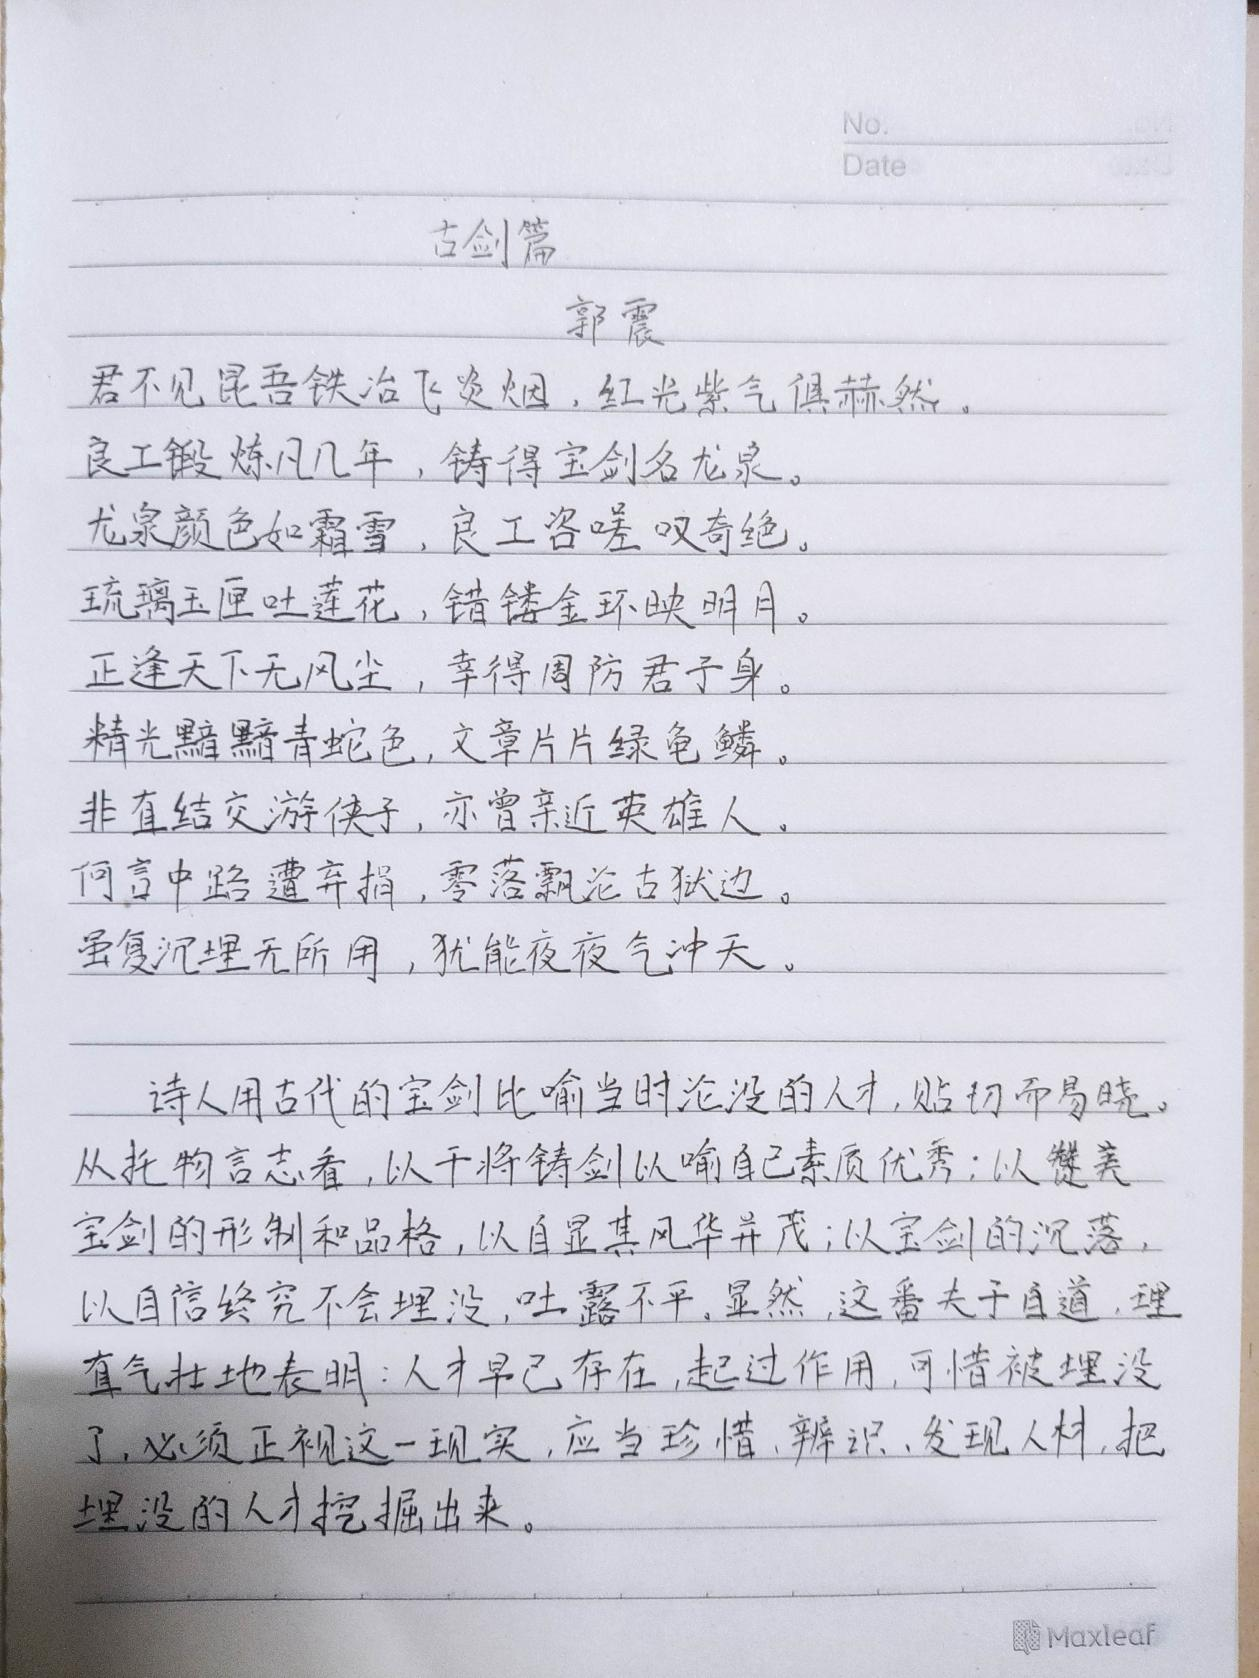 No.
Date
古剑篇
郭震
君不见昆吾铁冶飞炎烟，红光紫气俱赫然。
良工锻炼凡几年，铸得宝剑名龙泉。
龙泉颜色如霜雪，良工咨嗟叹奇绝。
琉璃玉匣吐莲花，错镂金环映明月。
正逢天下无风尘，幸得周防君子身。
精光黯黯青蛇色，文章片片绿龟鳞。
非直结交游侠子，亦曾亲近英雄人。
何言中路遭弃捐，零落飘沦古狱边。
虽复沉埋无所用，犹能夜夜气冲天。
诗人用古代的宝剑比喻当时沦没的人才，贴切而易晓。
从托物言志看，以干将铸剑以喻自己素质优秀；以赞美
宝剑的形制和品格，以自显其风华并茂；以宝剑的沉落，
以自信终究不会埋没，吐露不平。显然，这番夫子自道，理
直气壮地表明：人才早已存在，起过作用，可惜被埋没
了，必须正视这一现实，应当珍惜、辨识、发现人材，把
埋没的人才挖掘出来。
Maxleaf